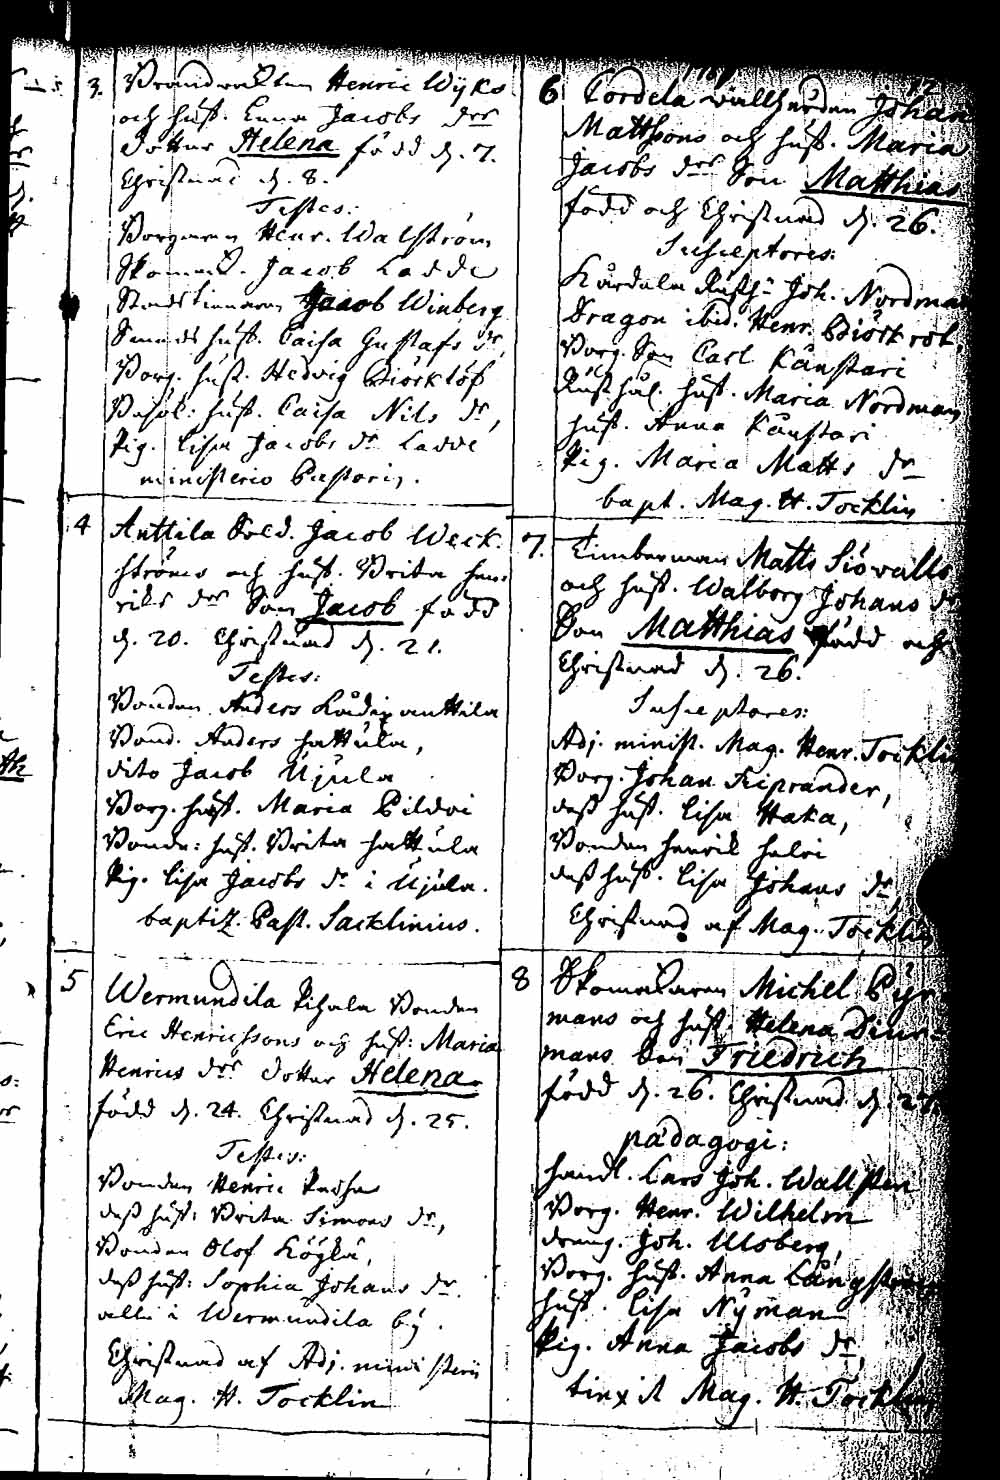 3. Brandvakten Henric Wyks
och hust. Anna Jacobs dr
dotter Helena född d. 7.
Christnad d. 8.
Testes:
Borgaren Henr. Walström
Skomak. Jacob Ladde
Jacob Winberg
hust. Caisa Gustafs dr,
Borg. hust. Hedvig Biörklöf
hust. Caisa Nils dr,
Pig. Lisa Jacobs dr Ladde
ministerio Pastoris.
4 Anttila Sold. Jacob Weck-
ströms och hust. Brita Hen-
riks dr Son Jacob född
d. 20. Christnad d. 21.
Testes:
Bonden Anders anttila
Bond. Anders Hattula,
dito Jacob Ujula
Borg. hust. Maria Pildvi
Bonde: hust. Brita Hattula
Pig. Lisa Jacobs dr i Ujula.
baptiz. Past. Sacklinius.
5 Wermundila Pihala Bonden
Eric Henricssons och hust: Maria
Henrics dr dotter Helena
född d. 24. Christnad d. 25.
Testes:
Bonden Henric
dess hust: Brita Simons dr,
Bonden Olof
dess hust: Sophia Johans dr.
alla i Wermundila by.
Christnad af Adj. ministerii
Mag. H. Tocklin
12
6 Cordela vallherden Johan
Matthsons och hust. Maria
Jacobs dr Son Matthias
född och Christnad d. 26.
Susceptores:
Kårdala Rusth. Joh. Nordman
Dragon ibid. Henr. Biörkrot,
Borg. Son Carl Känstari
Rusthål. hust. Maria Nordman
hust. Anna Känstari
Pig. Maria Matts dr
bapt. Mag. H. Tocklin
7. Timberman Matts Siövalls
och hust. Walborg Johans dr
Son Matthias född och
Christnad d. 26.
Susceptores:
Adj. minist. Mag. Henr. Tocklin
Borg. Johan Kiprander,
dess hust. Lisa Haka,
Bonden Henrik Helvi
dess hust. Lisa Johans dr,
Christnad af Mag. Tocklin
8 Skomakaren Michel Pyr-
mans och hust. Helena Diur-
mans Son Friedrich
född d. 26. Christnad d. 27.
pädagogi:
Handl. Lars Joh. Wallsten
Borg. Henr. Wilhelm
dreng. Joh. Ulsberg,
Borg. hust. Anna Långström
hust. Lisa Nyman
Pig. Anna Jacobs dr,
Mag. H. Tocklin